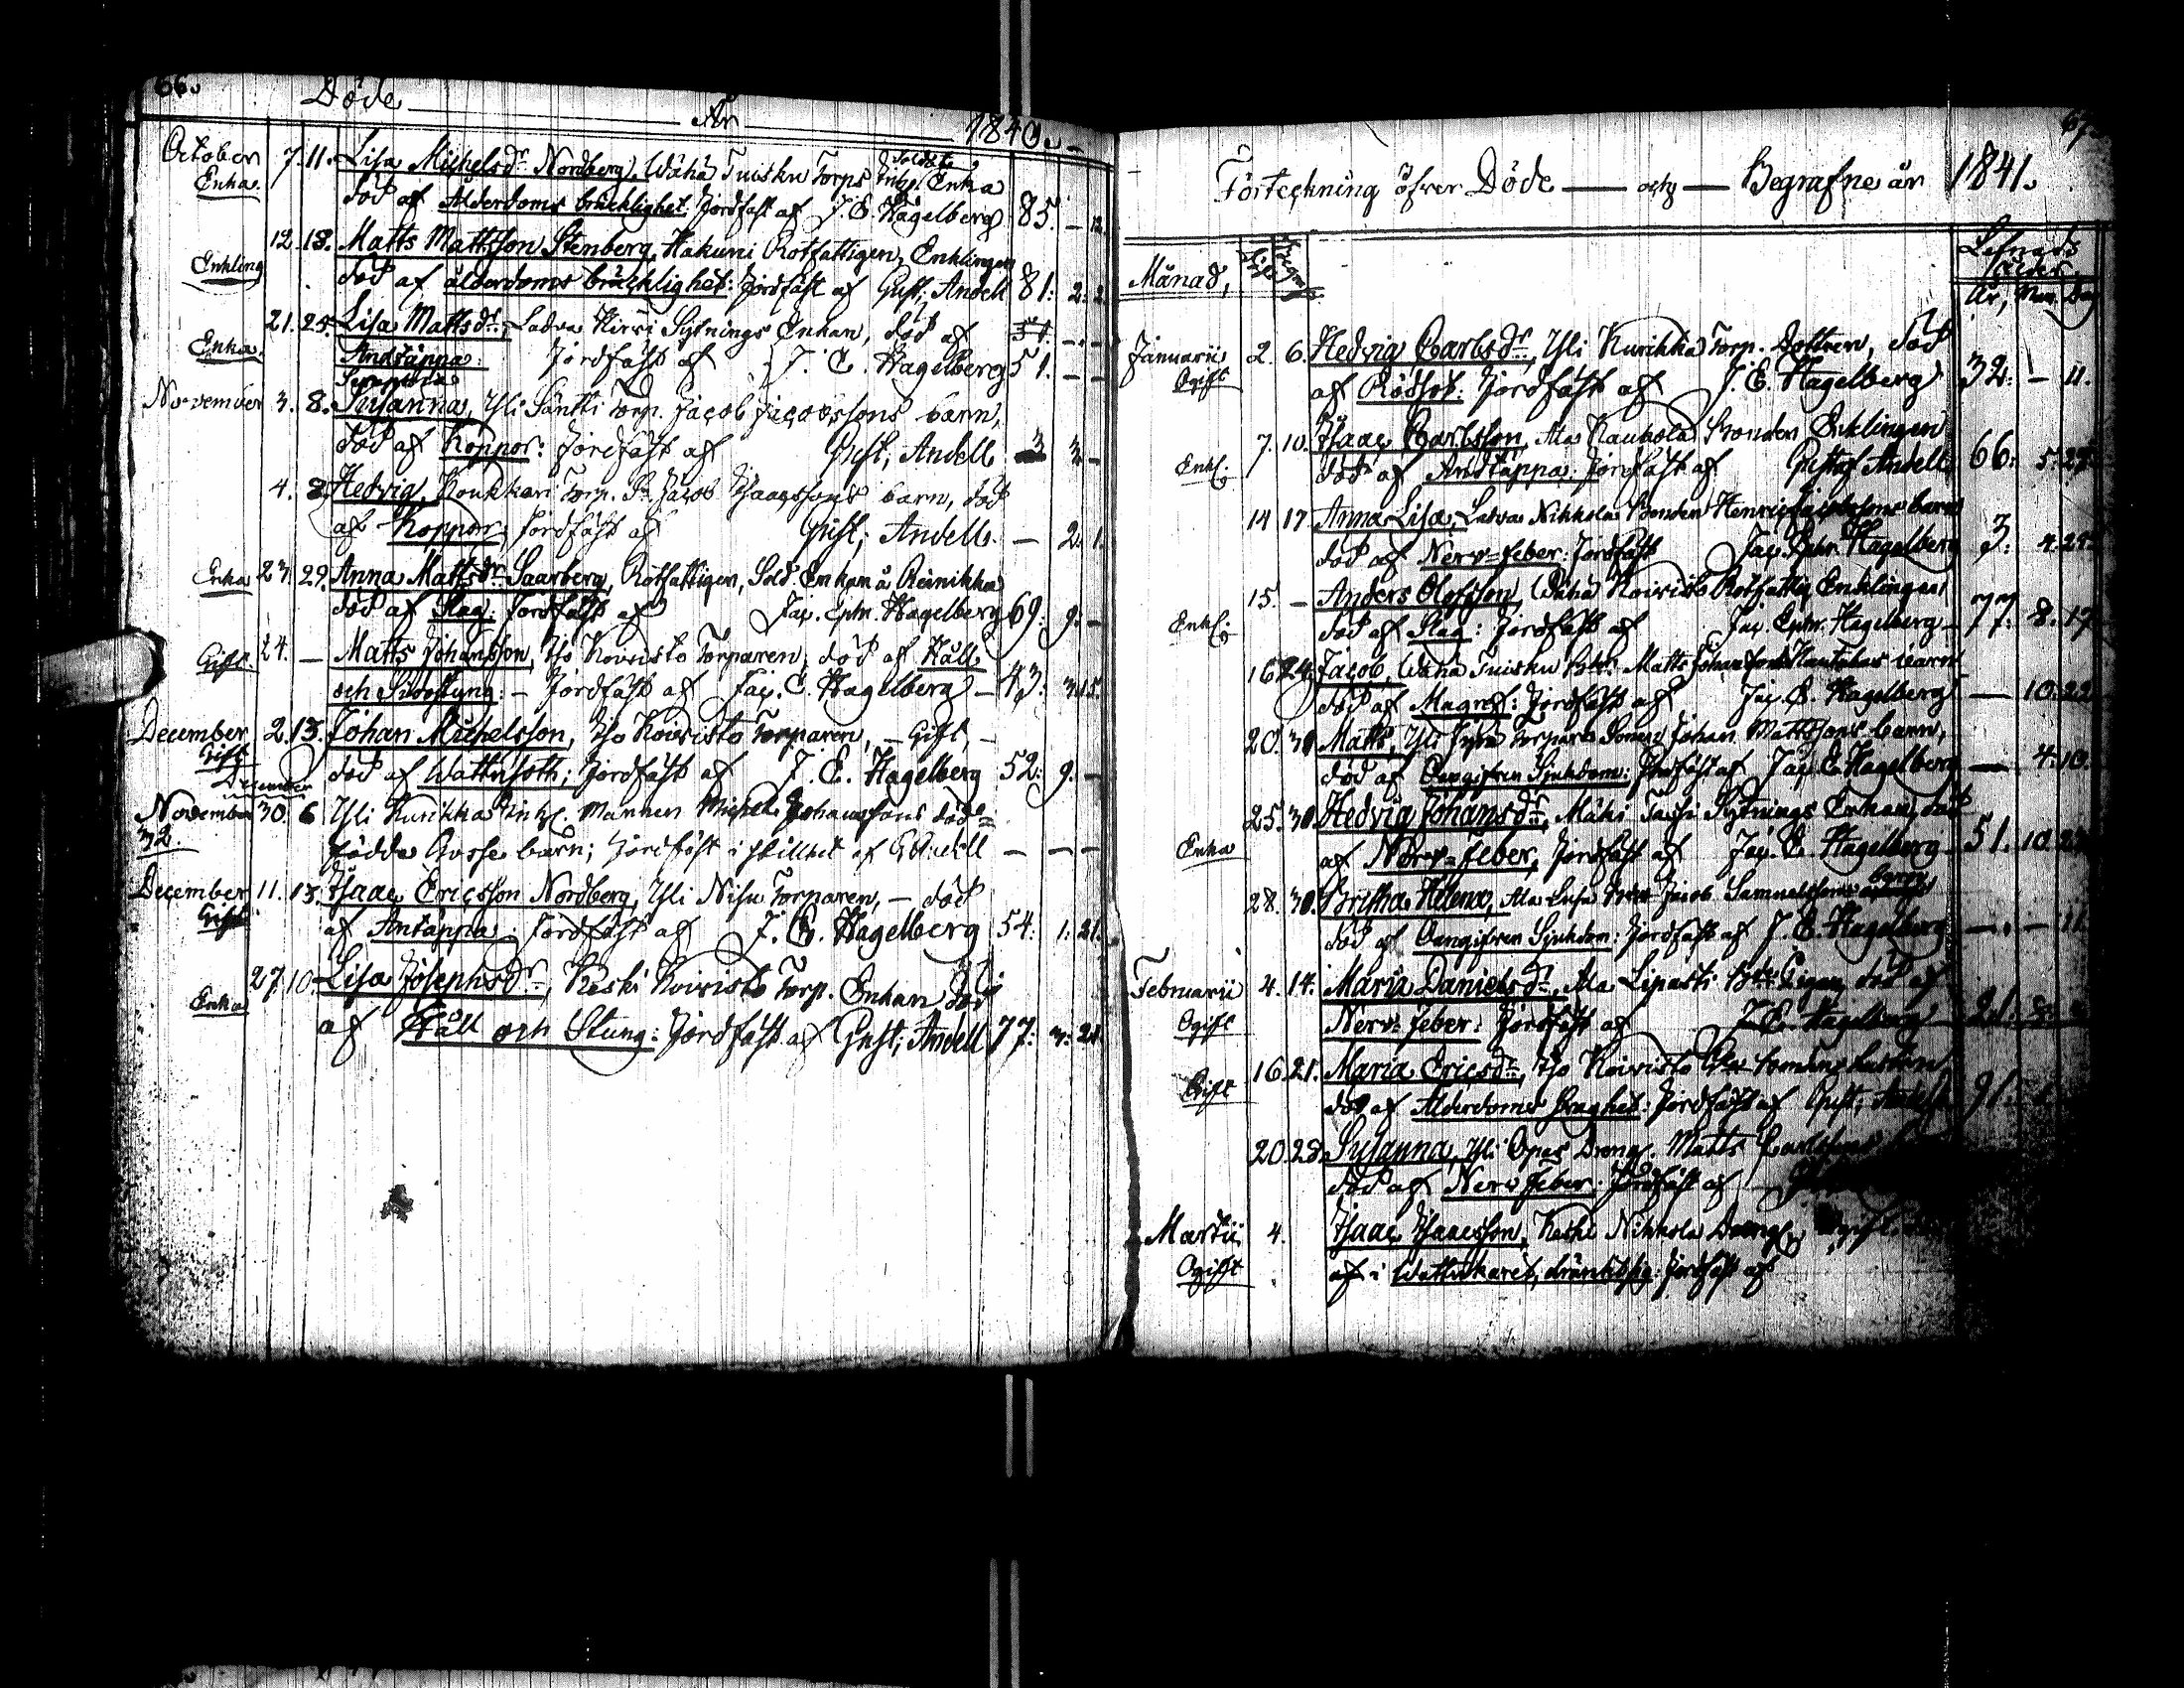 66.
Döde År 1840.
October 7. 11. Lisa Michelsdr Nordberg, Wähä Tuisku Torps Soldate Inhs. Enka
Enka. död af Ålderdoms bräcklighet. Jordfäst af J. E. Hagelberg 85. — 12.
12. 18. Matts Mattsson Stenberg, Hakuni Rotfattigen, Enklingen
Enkling död af ålderdoms bräcklighet: Jordfäst af Gust; Andell 81: 2: 2
21. 25. Lisa Mattsdr, Ladva Kirri Sytnings Enkan, död af
Enka. Andtäppa: Jordfäst af J. E. Hagelberg 51. — —
Serephia
November 3. 8. Susanna, Yli Säntti Torp. Jacob Jacobssons barn,
död af Koppor: Jordfäst af Gust; Andell. 3 3. —
4. 8. Hedvig, Koukkari Torp. Sn Jacob Isaacssons barn, död
af Koppor; Jordfäst af Gust; Andell. — 2. 1.
Enka 23. 29. Anna Mattsdr Saarberg, Rotfattigen, Sold. Enkan å Reinikka
död af Slag: Jordfäst af Jac. Ephr. Hagelberg 69: 9: —
Gift. 24. — Matts Johansson, Iso Koivisto Torparen, död af Håll
och Sidostyng: — Jordfäst af Jac. E. Hagelberg — 43: 3. 15.
December 2. 13. Johan Michelsson, Iso Koivisto Torparen, — Gift, —
Gift död af Wattusoth; Jordfäst af J. E. Hagelberg 52: 9. —
December
November 30. 6 Yli Kurikka Inhs. Mannen Michel Johanssons död=
32. födda Gosse barn; Jordfäst i stillhet af G Andell — — —
December 11. 13. Isaac Ericsson Nordberg, Yli Nisu Torparen, — död
Gift af Antäppa: Jordfäst af J. E. Hagelberg 54: 1: 21.
27. 10. Lisa Josephsdr, Keski Koivisto Torp. Enkan död
Enka af Håll och Stung: Jordfäst af Gust; Andell 77: 3: 21
67.
Förteckning öfver Döde — och — Begrafne år 1841.
Månad, Lefnads ålder
År, Mån. Dag
Januarii 2. 6. Hedvig Carlsdr, Yli Kurikka Torp. Dottren, död
Ogift af Rödsot: Jordfäst af J. E. Hagelberg 32: — 11.
7. 10. Isaac Carlsson, Ala Kauhola Bonden Enklingen
Enkl. död af Andtäppa: Jordfäst af Gustaf Andell 66: 5.
14 17 Anna Lisa, Ladva Nikkola Bonden Henric Jacobssons barn
död af Nerv=feber: Jordfäst Jac. Ephr. Hagelberg 3: 4.
15. — Anders Olofsson, Wähä Koivisto Rotfattig Enklingen
Enkl. död af Slag: Jordfäst af Jac. Ephr. Hagelberg — 77: 8. 17
16 24. Jacob, Wähä Tuisku Matts Johanssons barn
död af Magref: Jordfäst af Jac. E. Hagelberg — 10. 22
20. 30 Matts, Yli Torpare Johan Mattssons barn,
död af Oangifven Sjukdom: Jordfäst af Jac. E. Hagelberg — 4. 10.
25. 30. Hedvig Johansdr, Mäki Sytnings Enkan, död
Enka af Nerv=feber, Jordfäst af Jac. E. Hagelberg 51. 10.
28. 30. Britha Helena, Ala Jacob Samuelssons barn,
död af Oangifven Sjukdom: Jordfäst af J. E. Hagelberg — — 11
Februarii 4. 14. Maria Danielsdr, Ala Lipasti död af
Ogift Nerv=feber: Jordfäst af J. E. Hagelberg 21.
16. 21. Maria Ericsdr, Iso Koivisto
Gift död af Ålderdoms Svaghet: Jordfäst af Gust; Andell 91.
20. 28. Susanna, Yli Opas Dreng. Matts Carlssons
död af Nerv feber: Jordfäst af
Martii 4. Isaac Isaacsson, Keski Nikkola Dreng, Ogift
Ogift af i Wattukaret, Jordfäst af